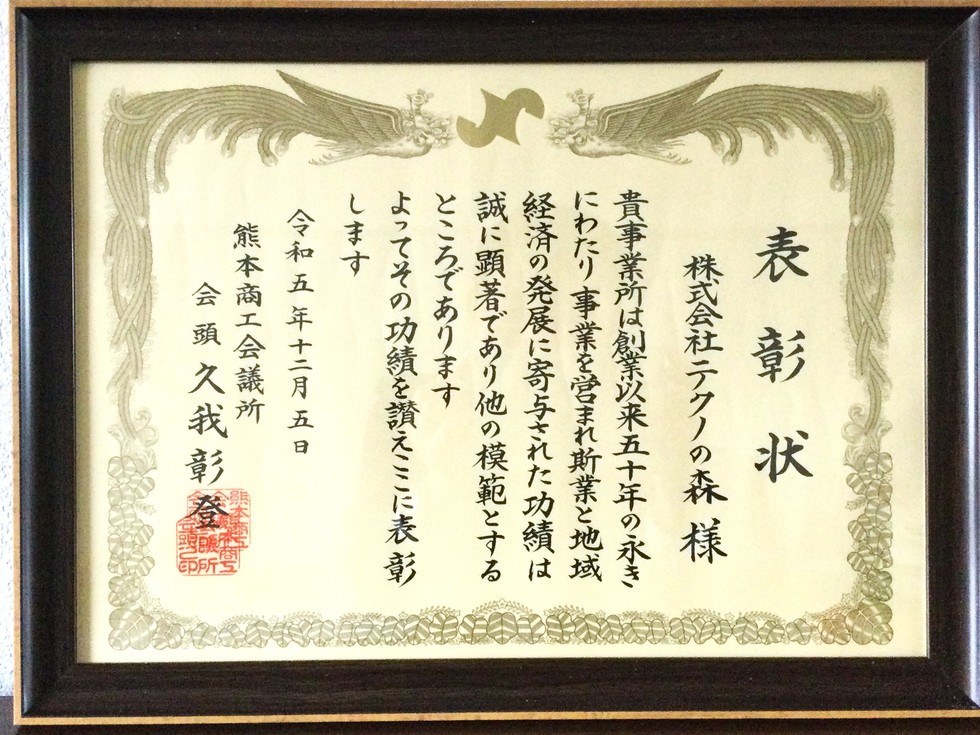 表彰状
株式会社テクノの森 様
貴事業所は創業以来五十年の永き
にわたり事業を営まれ斯業と地域
経済の発展に寄与された功績は
誠に顕著であり他の模範とする
ところであります
よってその功績を讃えここに表彰
します
令和五年十二月五日
熊本商工会議所
会頭 久我彰登